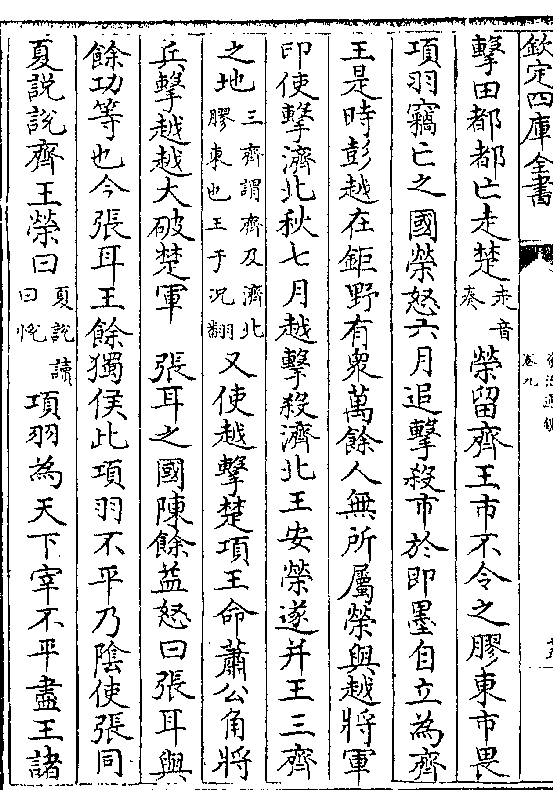 欽定四庫全書
卷九
擊田都都亡走楚走音奏榮留齊王市不令之膠東市畏
項羽竊亡之國榮怒六月追擊殺市於即墨自立為齊
王是時彭越在鉅野有衆萬餘人無所屬榮與越將軍
印使擊濟北秋七月越擊殺濟北王安榮遂并王三齊
之地三齊謂齊及濟北膠東也王于況翻又使越擊楚項王命蕭公角將
兵擊越越大破楚軍　張耳之國陳餘益怒曰張耳與
餘功等也今張耳王餘獨侯此項羽不平乃陰使張同
夏說說齊王榮曰夏說讀曰悅項羽為天下宰不平盡王諸